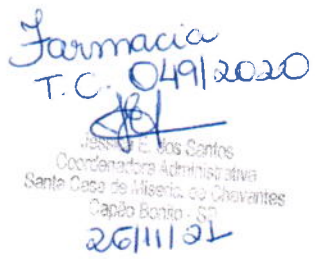 Farmacia
T.C. 049/2020
Jessica E. dos Santos
Coordenadora Administrativa
Santa Casa de Miseric. de Chavantes
Capão Bonito - SP
26/11/21